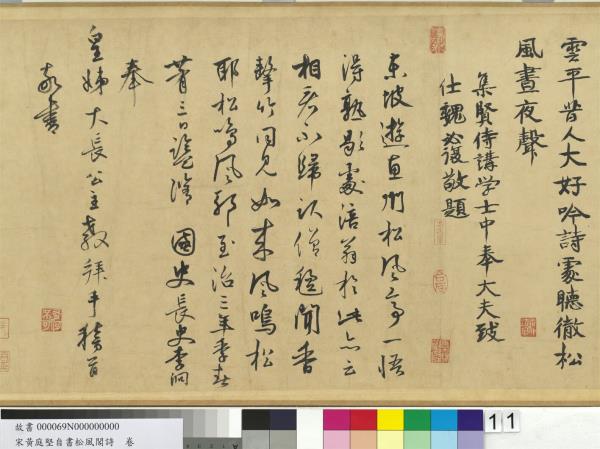 雲平昔人大好吟詩處聽徹松
風晝夜聲
集賢侍講学士中奉大夫致
仕魏必復敬題
東坡遊惠州松風亭一悟
得熟歇處涪翁於此亦云
不歸僧氈聞香
擊竹同見如来風鳴松
耶松鳴風耶至治三年季春
三日國史長史李泂
奉
皇姊大長公主教拜手稽首
敬書
故書 000069N000000000
宋黃庭堅自書松風閣詩 卷
11